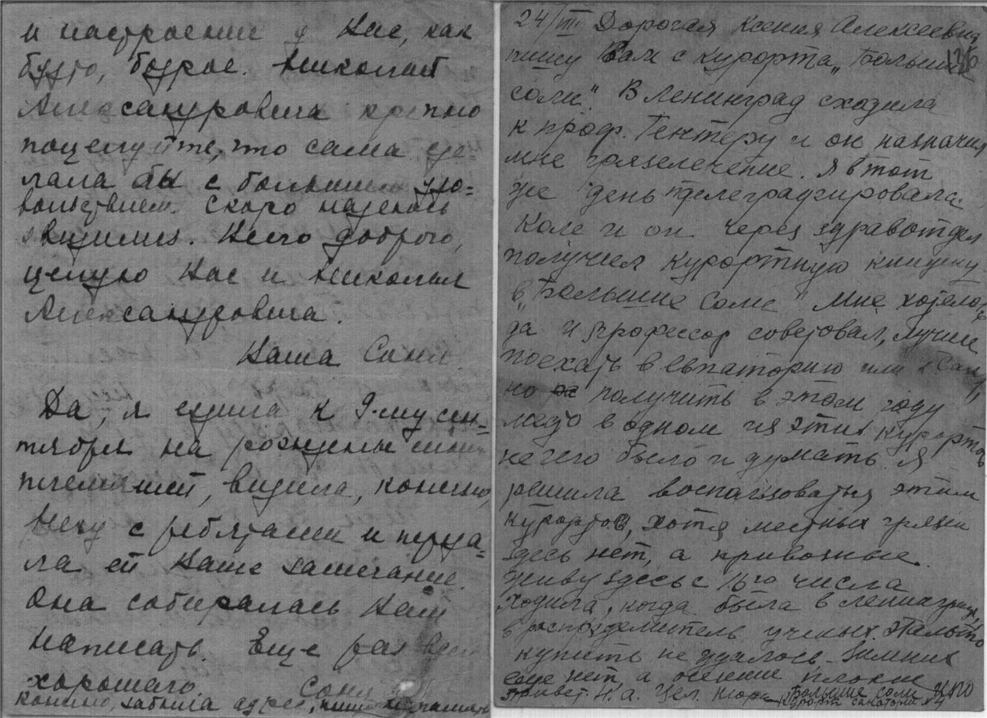 и настроение у Вас, как
будто, бодрое. Николая
Александровича крепко
поцелуйте, что сама сде-
лала бы с большим удо-
вольствием. Скоро надеюсь
увидимся. Всего доброго,
целую Вас и Николая
Александровича.
Ваша Соня.
Да, я ездила к 9-му сен-
тября на рождение моих
племянниц, видела, конечно,
с ребятами и переда-
ла ей Ваше замечание.
Она собиралась Вам
написать. Еще раз всего
хорошего. Соня
Конечно, забыла адрес, пишу
24/III Дорогая Ксения Алексеевна
пишу Вам с курорта „Большие
соли". В Ленинград сходила
к проф. Гентеру и он назначил
мне грязелечение. Я в тот
же день телеграфировала
Коле и он через здравотдел
получил курортную книжку
в „Большие Соли". Мне хотелось,
да и профессор советовал, лучше
поехать в Евпаторию или в Саки,
но получить в этом году
место в одном из этих курортов
нечего было и думать. Я
решила воспользоваться этим
курортом, хотя местных грязей
здесь нет, а привозные.
Живу здесь с 16го числа
Ходила, когда была в Ленинграде,
в распределитель ученых. Пальто
купить не удалось. Зимних
еще нет, а осенние плохие
Привет Н.А. Цел. Нюра Большие соли
Курорта санатория №4